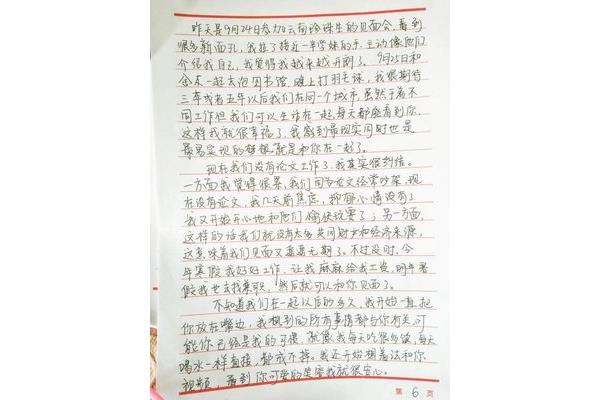 昨天是9月24日参加云南珍珠生的见面会,看到
很多新面孔,我拉了接近一半学妹的手,主动像他们
介绍我自己,我觉得我越来越开朗了。9月25日和
一起去泡图书馆,晚上打羽毛球,我很期待
三年或者五年以后我们在同一个城市,虽然干着不
同工作但我们可以生活在一起,每天都能看到你,
这样我就很幸福了,我离到最现实同时也是
最易实现的梦想就是和你在一起了。
现在我们没有论文工作了,我其实很纠结。
一方面我觉得很累,我们因为论文经常吵架,现
在没有论文,我几天前焦虑,抑郁心情没有了
我又开始开心地和他们愉快玩耍了;另一方面,
这样的话我们就没有太多共同财产和经济来源,
这意味着我们见面又遥遥无期了。不过没时,今
年寒假我好好工作,让我麻麻给我工资,明年暑
假我也去找兼职,然后就可以和你见面了。
不知道我们在一起以后的多久,我开始一直把
你放在嘴边,我想到的所有事情都与你有关,可
能你已经是我的习惯,就像我每天吃很多饭,每天
喝水一样直接,都戒不掉。我还开始想着法和你
视频,看到你可爱的笑容我就很安心。
第 6 页